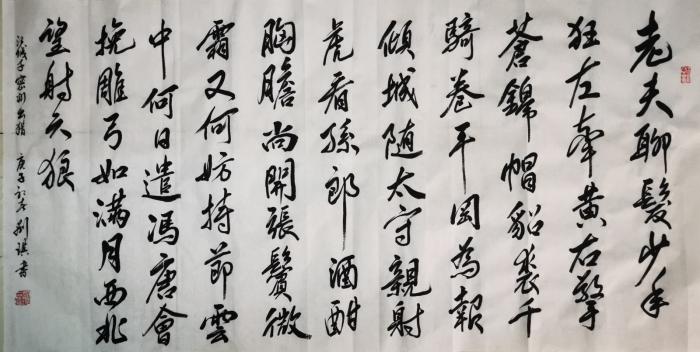 老夫聊發少年
狂左牽黄右擎
蒼錦帽貂裘千
騎卷平岡為報
傾城随太守親射
虎看孫郎酒酣
胸膽尚開張鬢微
霜又何妨持節雲
中何日遣馮唐會
挽雕弓如滿月西北
望射天狼
江城子密州出猎 庚子初冬 書